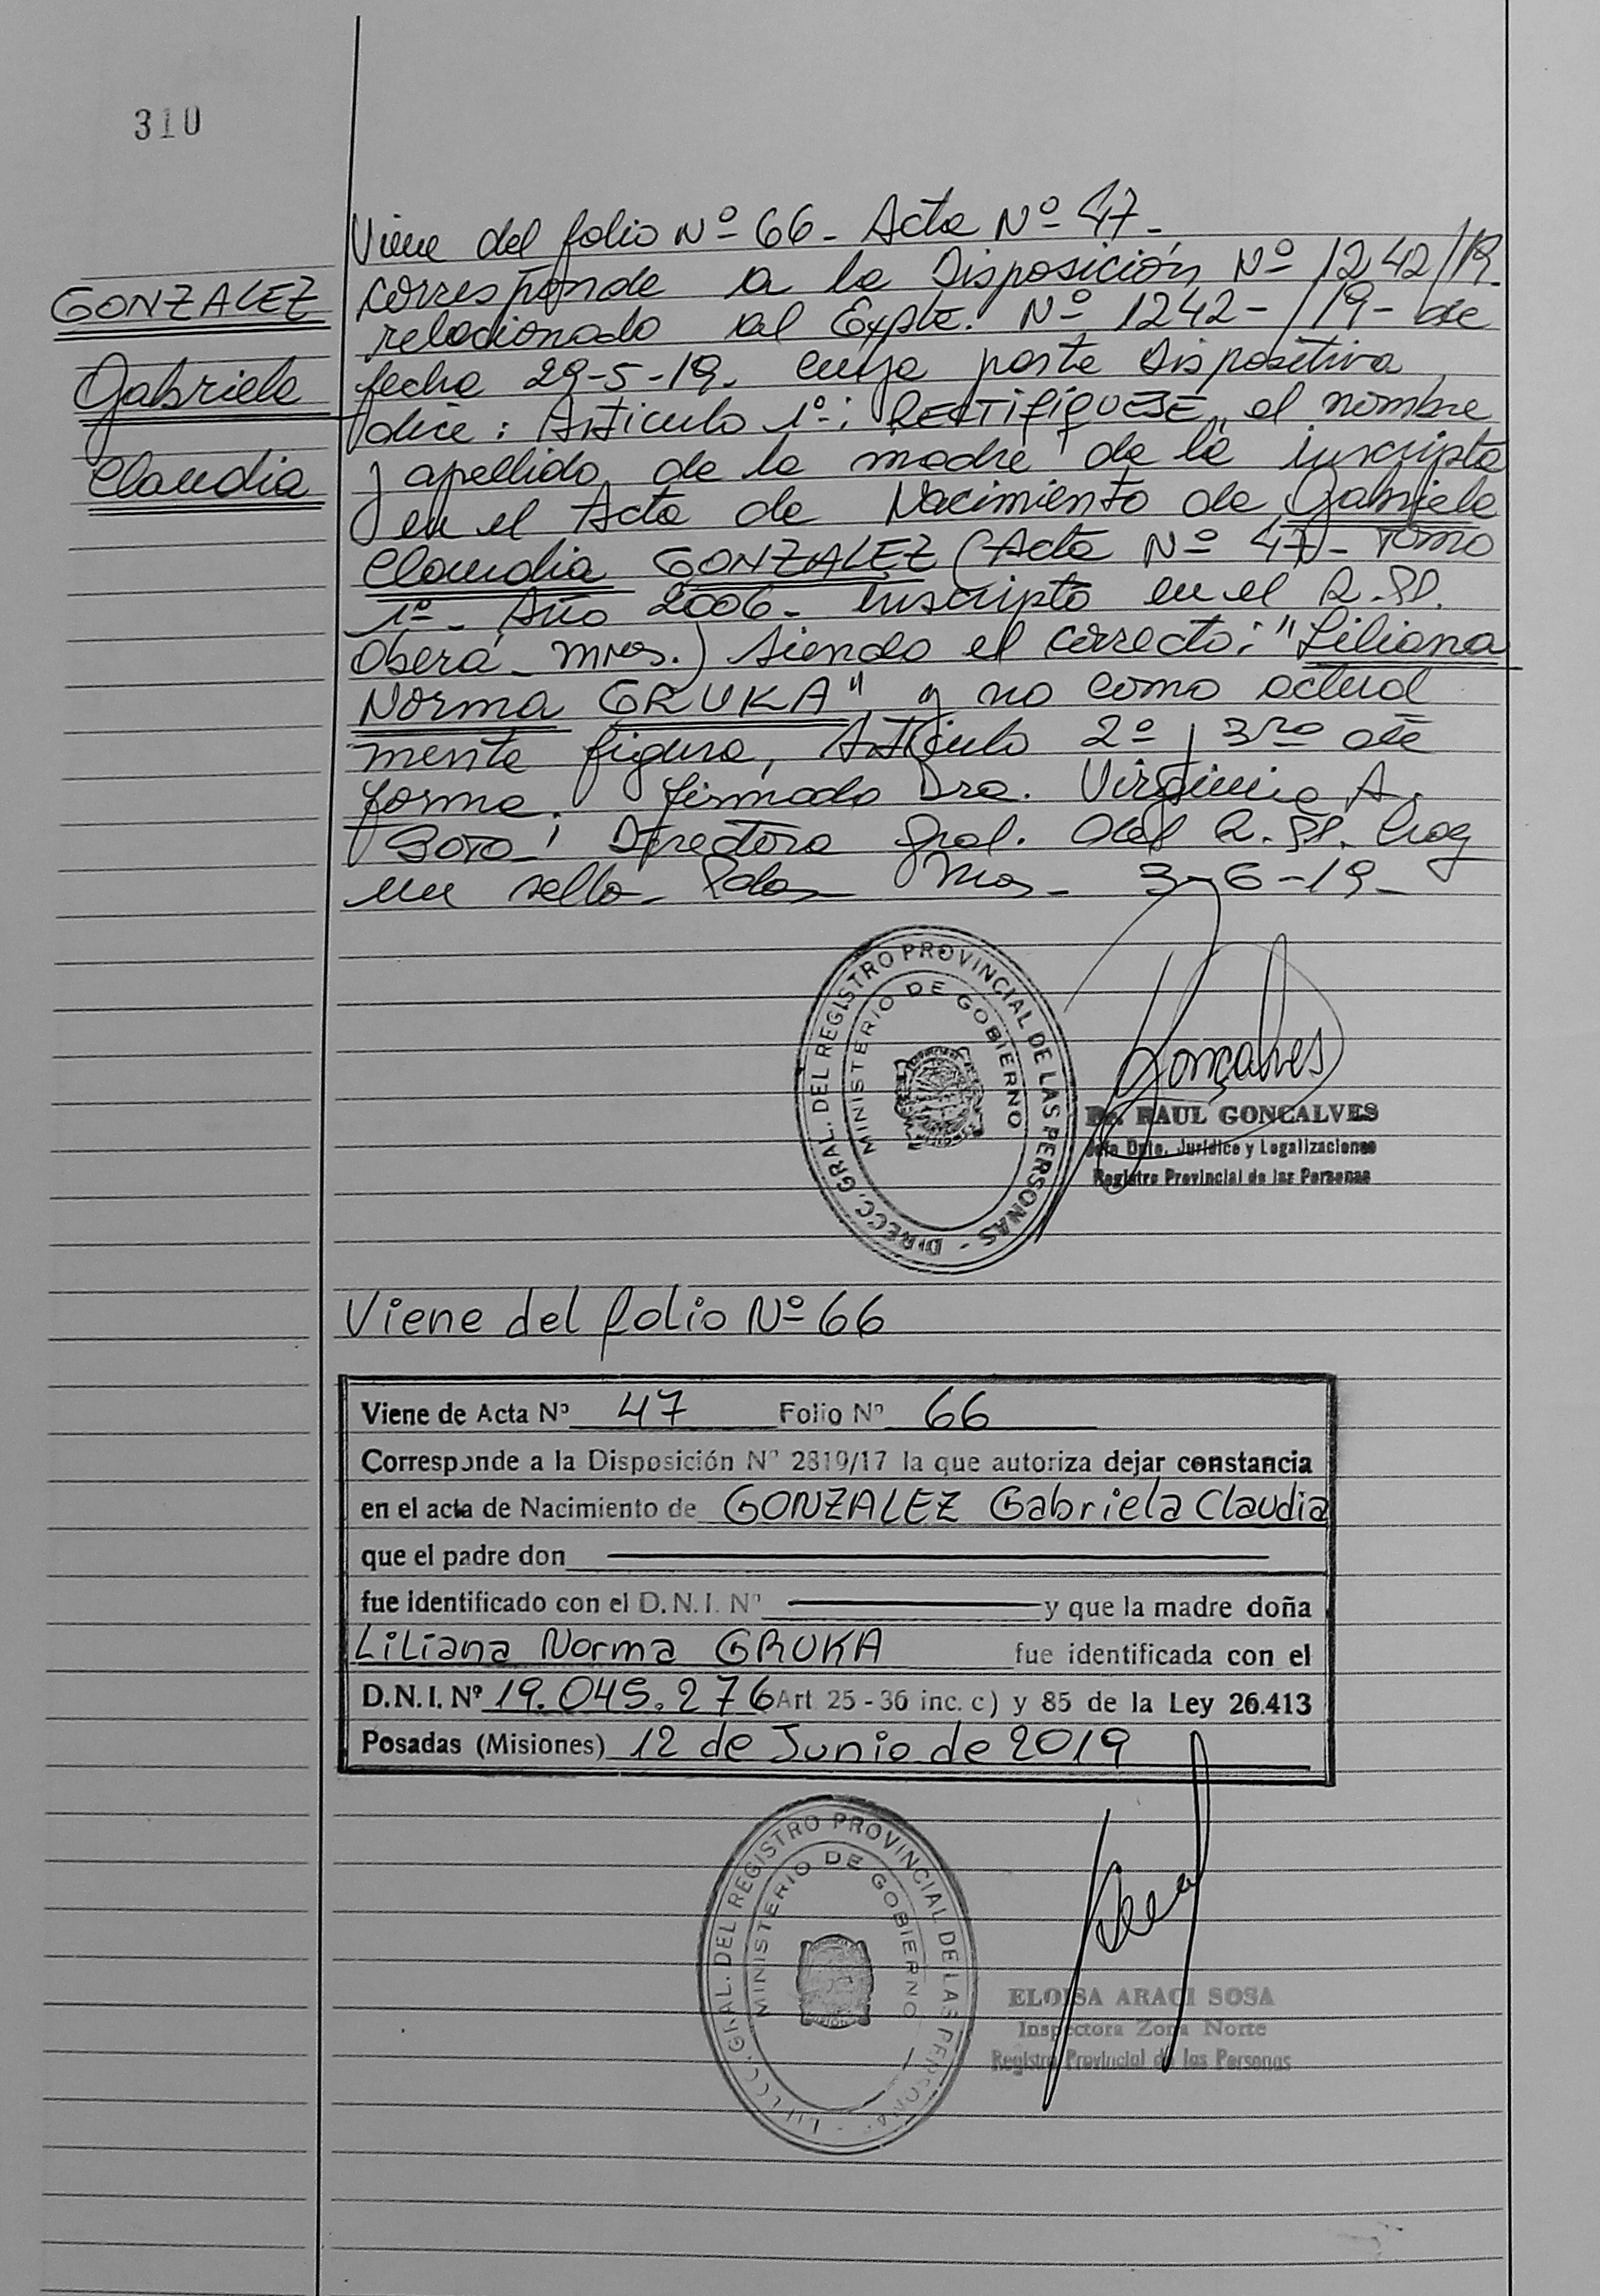 310
Viene del folio Nº 66- Acta Nº 47-
GONZALEZ
Gabriela
Claudia
corresponde a la Disposición Nº 1242/19.
relacionado al Expte. Nº 1242-/19- de
fecha 29-5-19. cuya parte Dispositiva
dice: Articulo 1º: RECTIFIQUESE, el nombre
y apellido de la madre de la inscripta
en el Acta de Nacimiento de Gabriela
Claudia GONZALEZ (Acta Nº 47- Tomo
1º- Año 2006- inscripto en el R.P.
Oberá- Mnes.) siendo el correcto: "Liliana
Norma GRUKA" y no como actual
mente figura, Articulo 2º, 3ro de
forma. firmado Dra. Virginia A.
Directora Gral. del R.P. hay
un sello- Pdas Mnes- 3-6-19-
DIRECC. GRAL. DEL REGISTRO PROVINCIAL DE LAS PERSONAS -
MINISTERIO DE GOBIERNO
Gonçalves
Dr. RAUL GONCALVES
Jefe Dpto. Jurídico y Legalizaciones
Registro Provincial de las Personas
Viene del folio Nº 66
Viene de Acta Nº 47 Folio Nº 66
Corresponde a la Disposición Nº 2819/17 la que autoriza dejar constancia
en el acta de Nacimiento de GONZALEZ Gabriela Claudia
que el padre don
fue identificado con el D.N.I. Nº y que la madre doña
Liliana Norma GRUKA fue identificada con el
D.N.I. Nº 19.045.276 Art. 25 - 36 inc. c) y 85 de la Ley 26.413
Posadas (Misiones) 12 de Junio de 2019
DIRECC. GRAL. DEL REGISTRO PROVINCIAL DE LAS PERSONAS -
MINISTERIO DE GOBIERNO
ELOISA ARACI SOSA
Inspectora Zona Norte
Registro Provincial de las Personas